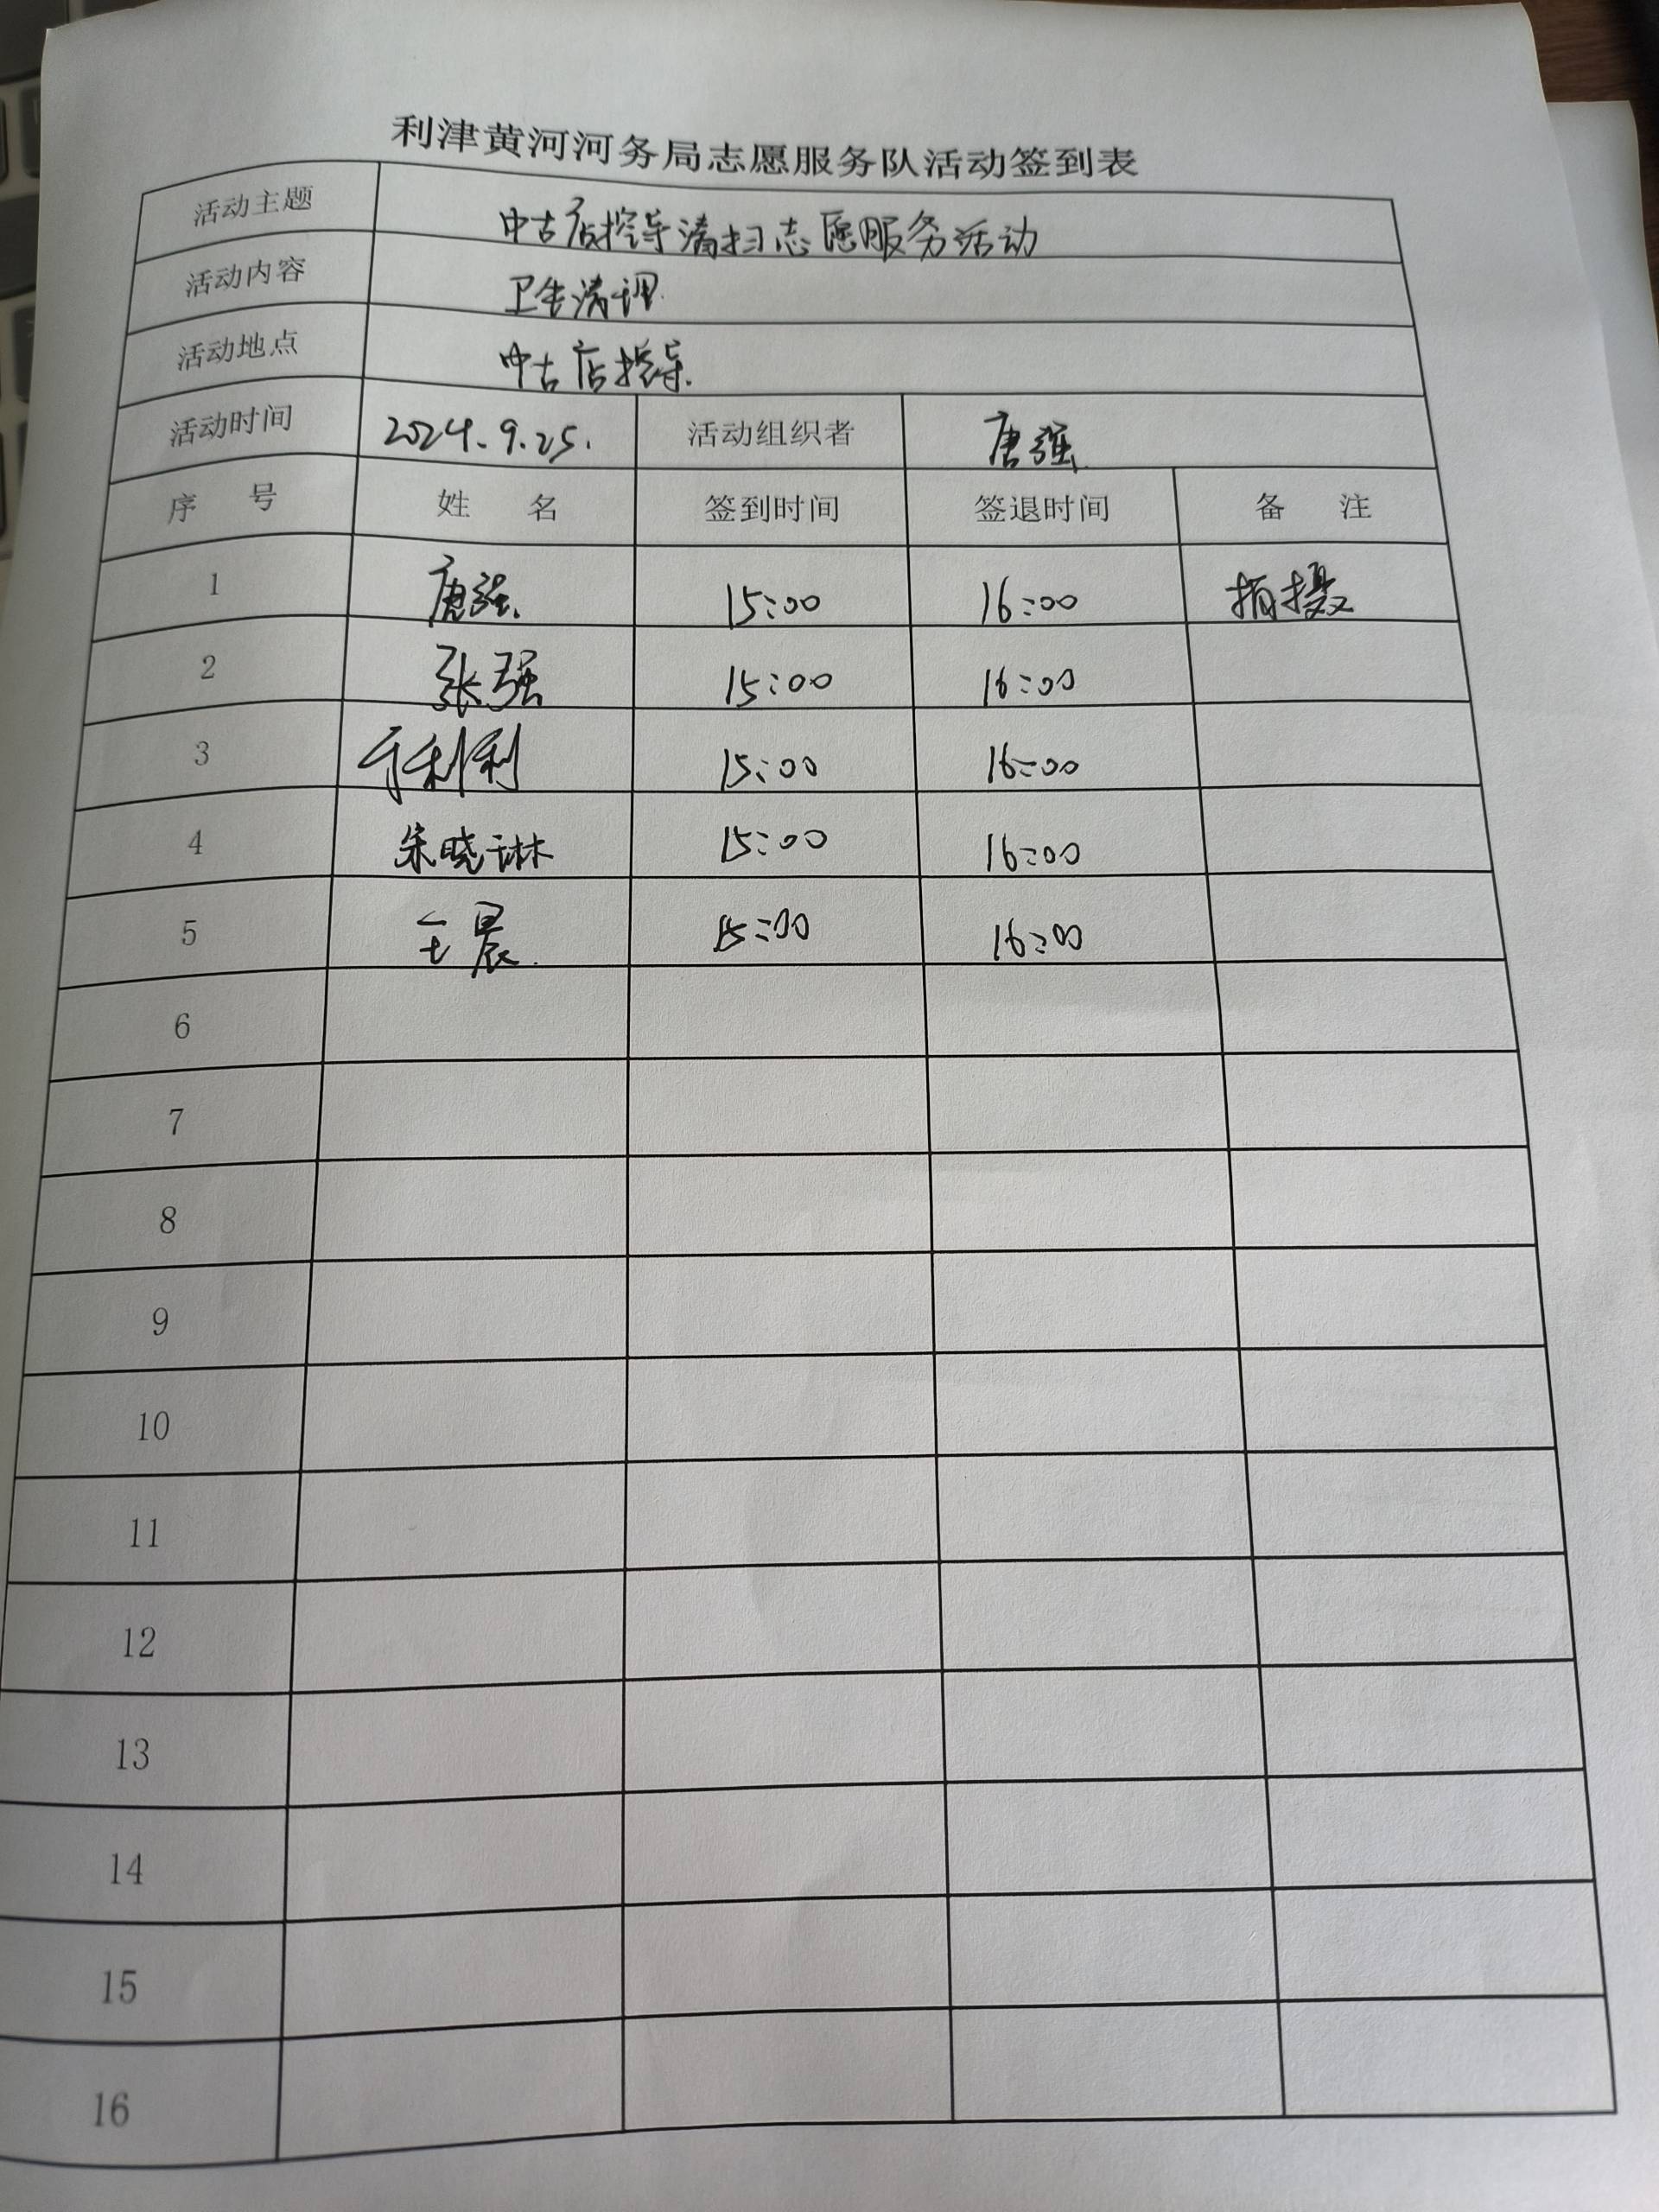 利津黄河河务局志愿服务队活动签到表
活动主题 中古店控导清扫志愿服务活动
活动内容 卫生清理.
活动地点 中古店控导.
活动时间 2024.9.25. 活动组织者 唐强
序 号 姓 名 签到时间 签退时间 备 注
1 唐强 15:00 16:00 拍摄
2 张强 15:00 16:00
3 于利利 15:00 16:00
4 朱晓琳 15:00 16:00
5 王晨. 15:00 16:00
6
7
8
9
10
11
12
13
14
15
16